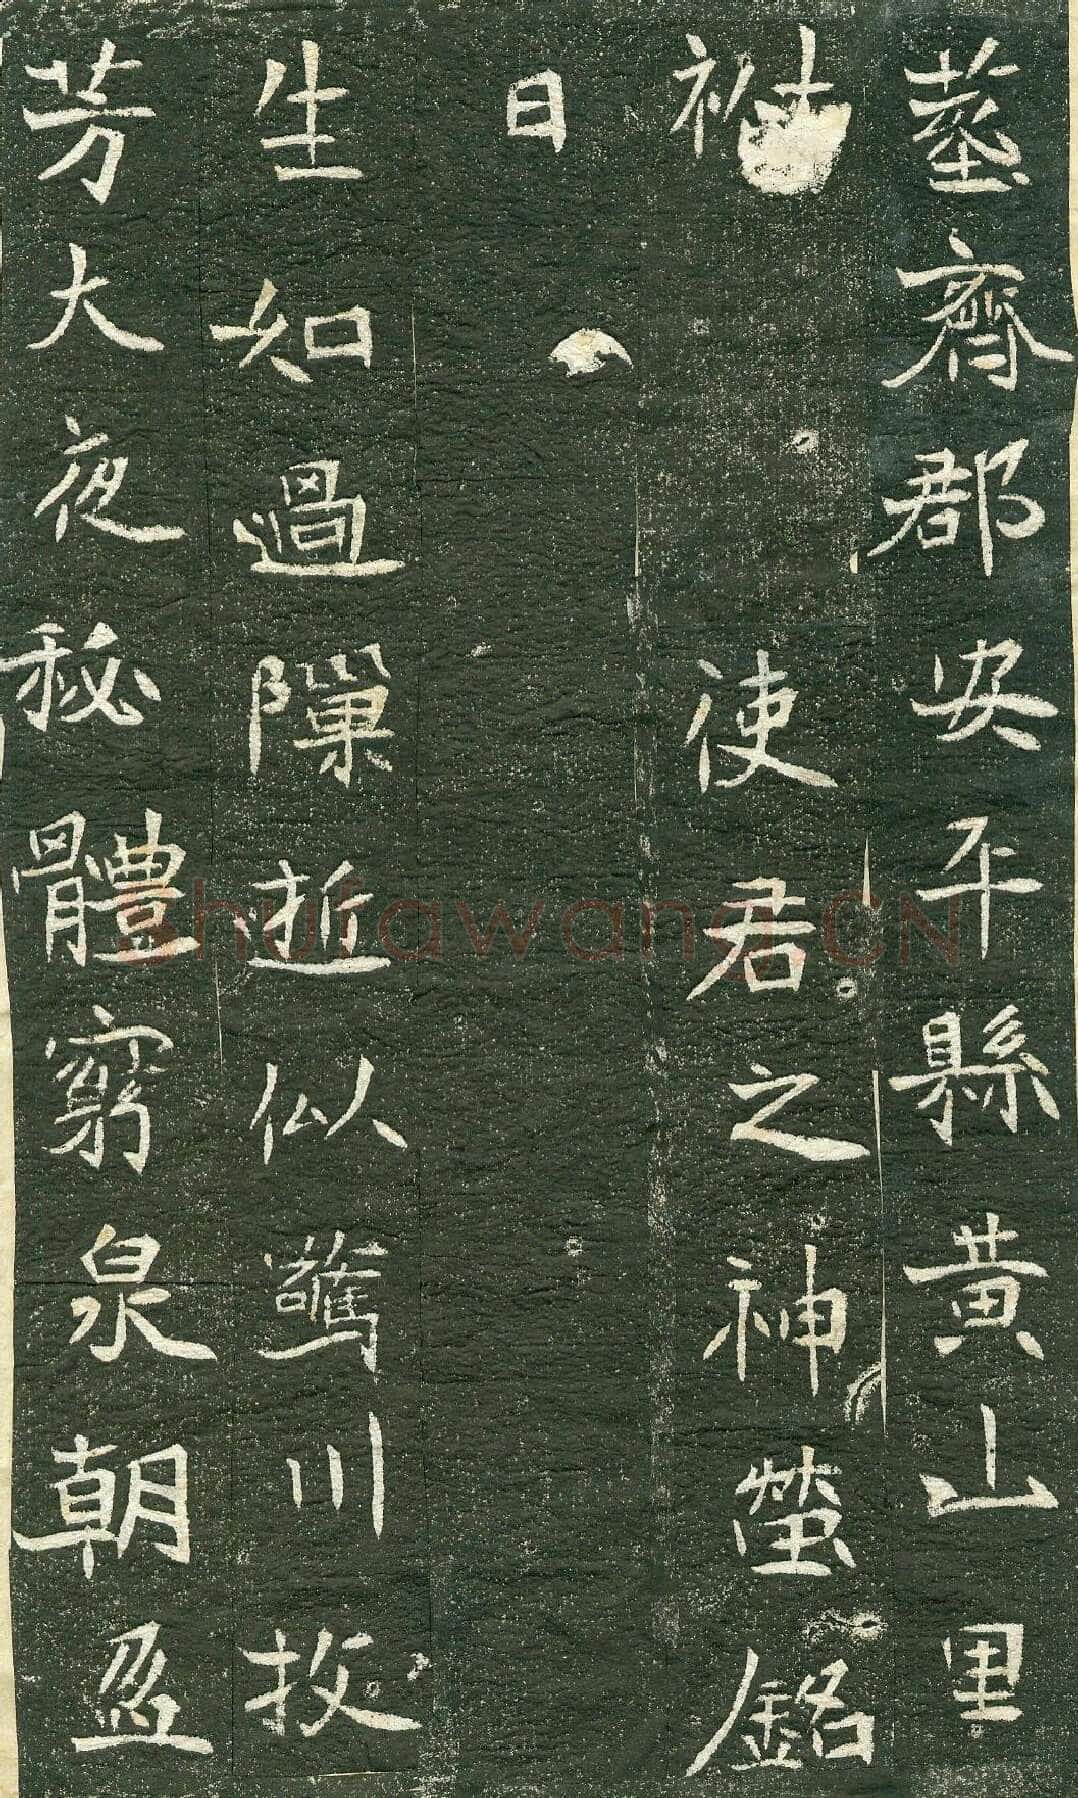 塟齊郡安平縣黄山里
祔　使君之神塋銘
曰
生如過隟逝似驚川投
芳大夜秘體窮泉朝盈
shufawang.CN